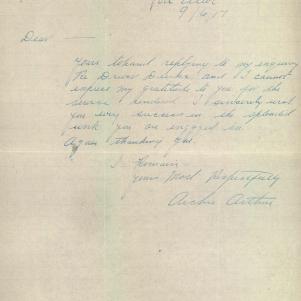 9/6/17
Dear
Yours to hand replying to my enquiry
Re Driver and I cannot
express my gratitude to you for the
service rendered I sincerely wish
you every success in the splendid
work you are engaged in
Again thanking you
I Remain
Yours Most Respectfully
Archie